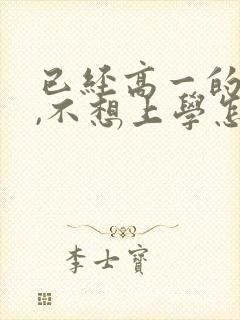 已经高一的
,不想上學怎
李士寶